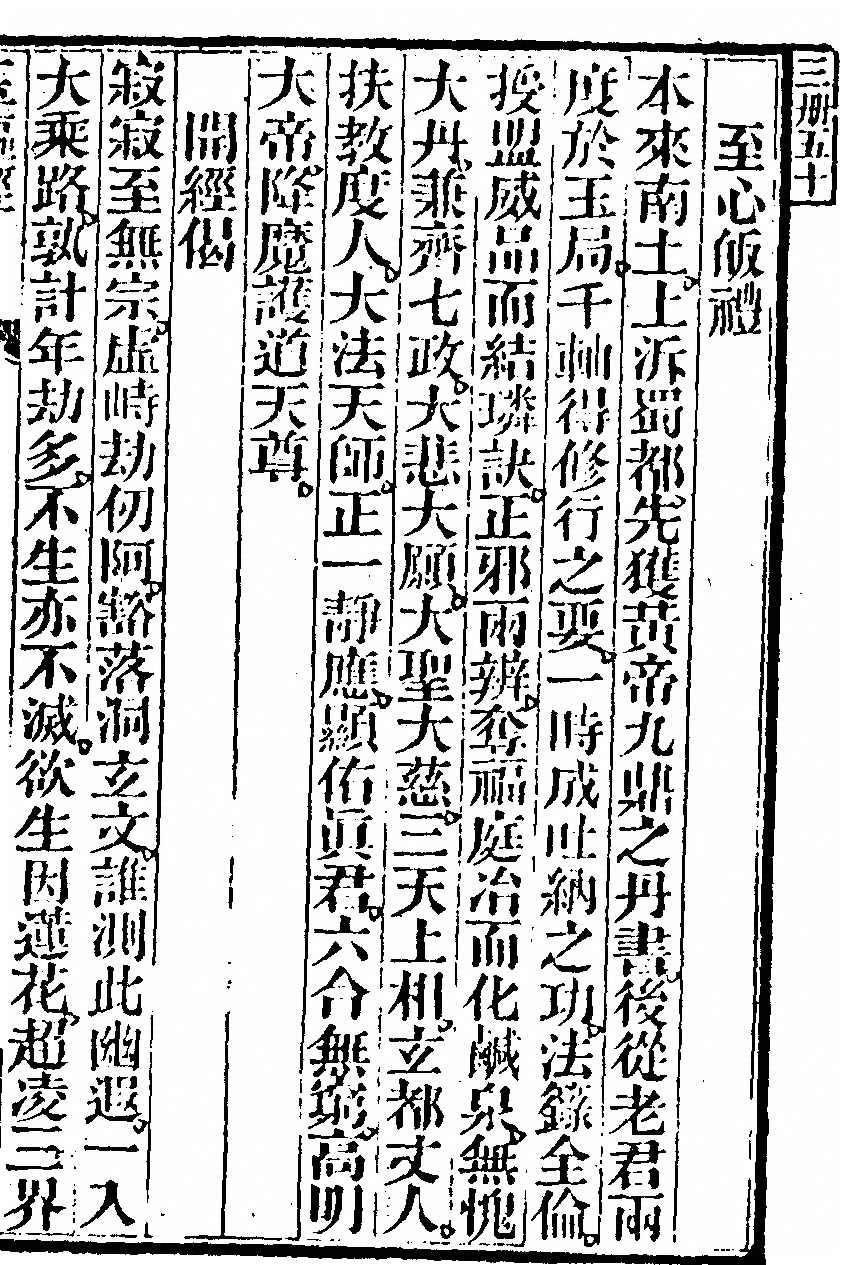 三册五十
至心皈禮
本來南土。上泝蜀都。先獲黃帝九鼎之丹書。後從老君兩
度於玉局。千軸得修行之要。一時成吐納之功。法籙全倫。
授盟威品而結璘訣。正邪兩辨。奪福庭冶而化鹹泉。無愧
大丹。兼齊七政。大悲大願。大聖大慈。三天上相。玄都丈人。
扶教度人。大法天師。正一靜應。顯佑眞君。六合無窮。高明
大帝。降魔護道天尊。
開經偈
寂寂至無宗。虛峙劫仞阿。豁落洞玄文。誰測此幽遐。一入
大乘路。孰計年劫多。不生亦不滅。欲生因蓮花。超凌三界